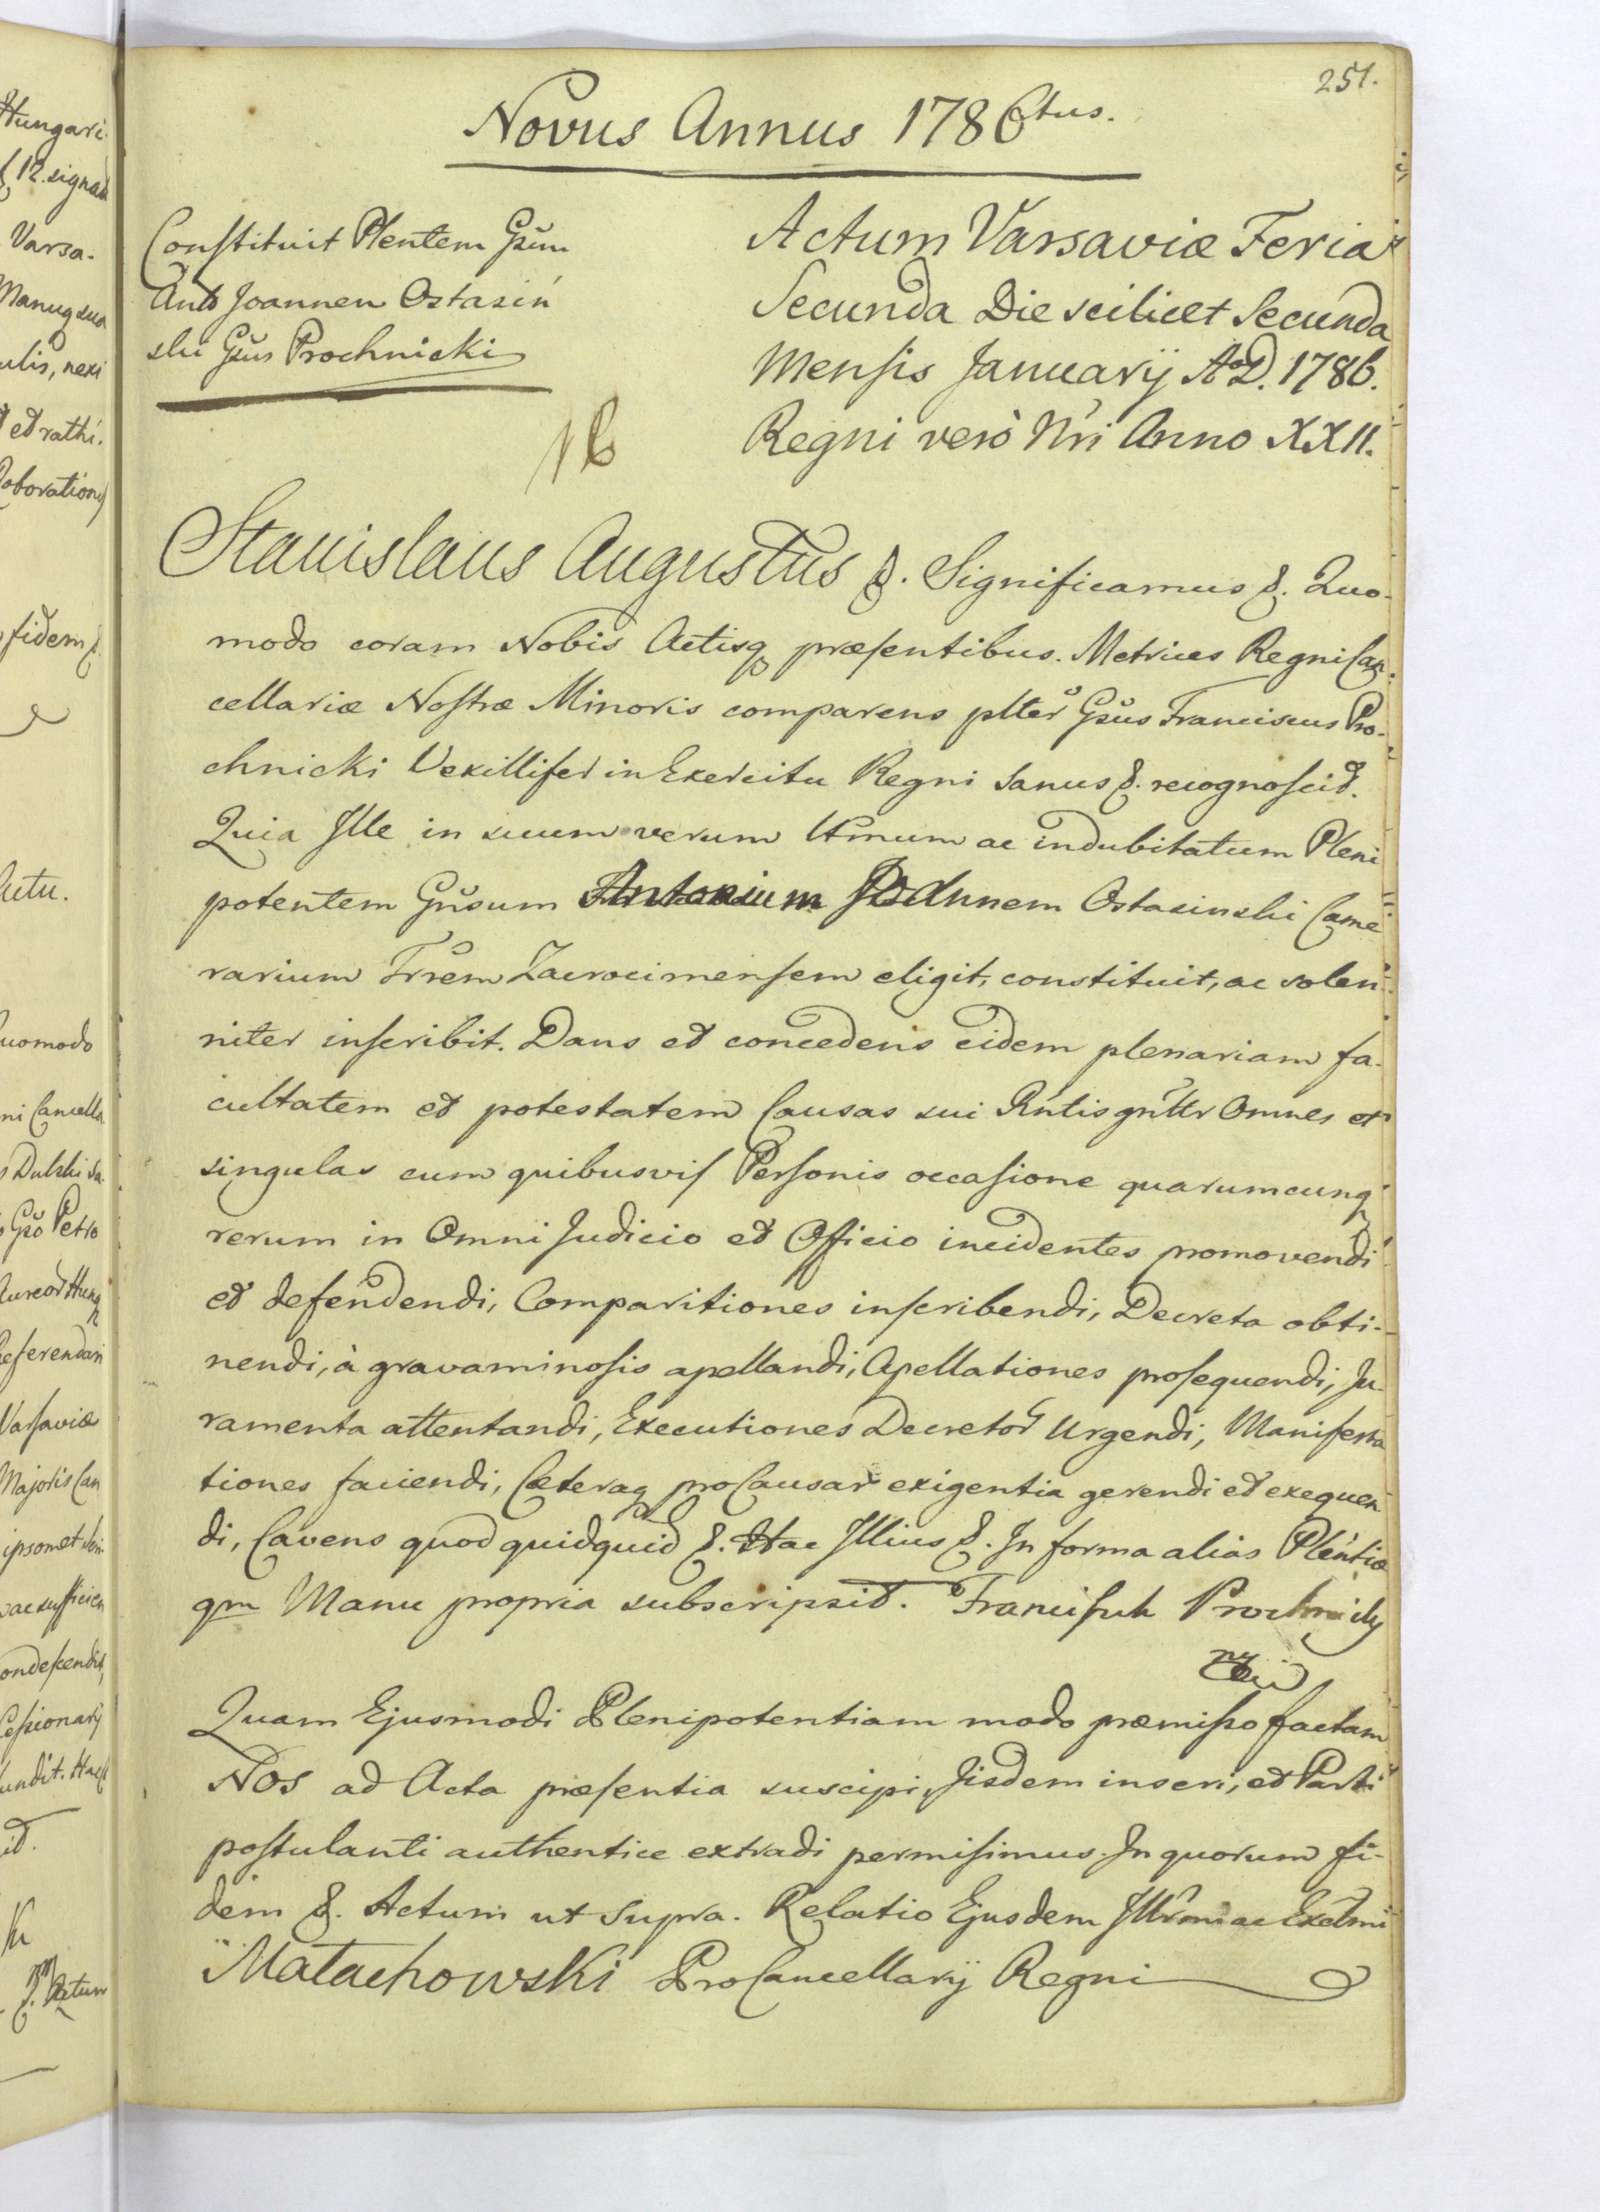 251.
Novus Annus 1786tus.
Constituit Plentem Gsum
Anto Joannem Ostasiń
ski Gsus Prochnicki
Actum Varsaviæ Feria
Secunda Die scilicet Secunda
Mensis Januarÿ AoD. 1786.
Regni verò Nri Anno XXII.
Stanislaus Augustus &. Significamus &. Quo-
modo coram Nobis Actisq præsentibus. Metrices Regni Can
cellariæ Nostræ Minoris comparens plter Gsus Franciscus Pro-
chnicki Vexillifer in Exercitu Regni Sanus &. recognoscit.
Quia Ille in suum verum Ltmum ac indubitatum Pleni
potentem Gnsum Antonium Joannem Ostasinski Came
rarium Trrem Zacrocimensem eligit, constituit, ac solen
niter inscribit. Dans et concedens eidem plenariam fa-
cultatem et potestatem Causas sui Rntis gnltr Omnes et
singulas cum quibusvis Personis occasione quarumcunq
rerum in Omni Judicio et Officio incidentes promovendi
et defendendi, Comparitiones inscribendi, Decreta obti-
nendi, à gravaminosis apellandi, Apellationes prosequendi, Ju-
ramenta attentandi, Executiones Decretor Urgendi, Manifesta
tiones faciendi, Cæteraq pro Causar exigentia gerendi et exequen
di, Cavens quod quidquid &. Hac Illius &. In forma alias Plentiæ
qm Manu propria subscripsit. Francisuk Prochnicky
Quam Ejusmodi Plenipotentiam modo præmisso factam
Nos ad Acta præsentia suscipi, Iisdem inseri, et Parti
postulanti authentice extradi permisimus. In quorum fi-
dem &. Actum ut supra. Relatio Ejusdem Illrmi ac Exclmi
Małachowski ProCancellarÿ Regni